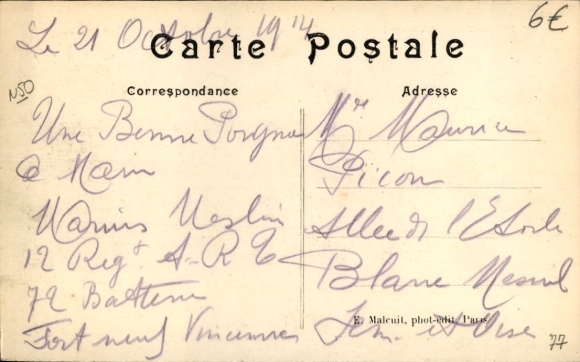 Le 21 Octobre 1914
6€
Carte Postale
N50
Correspondance
Adresse
Une Bonne Poignée
a Main
Marius Meslin
12 Regt A-R T
72 Batterie
Fort neuf Vincennes
Mr Maurice
Picon
Allée de l'Etoile
Blanc Mesnil
Sein et Oise
E. Maleuit, phot-édit, Paris
77